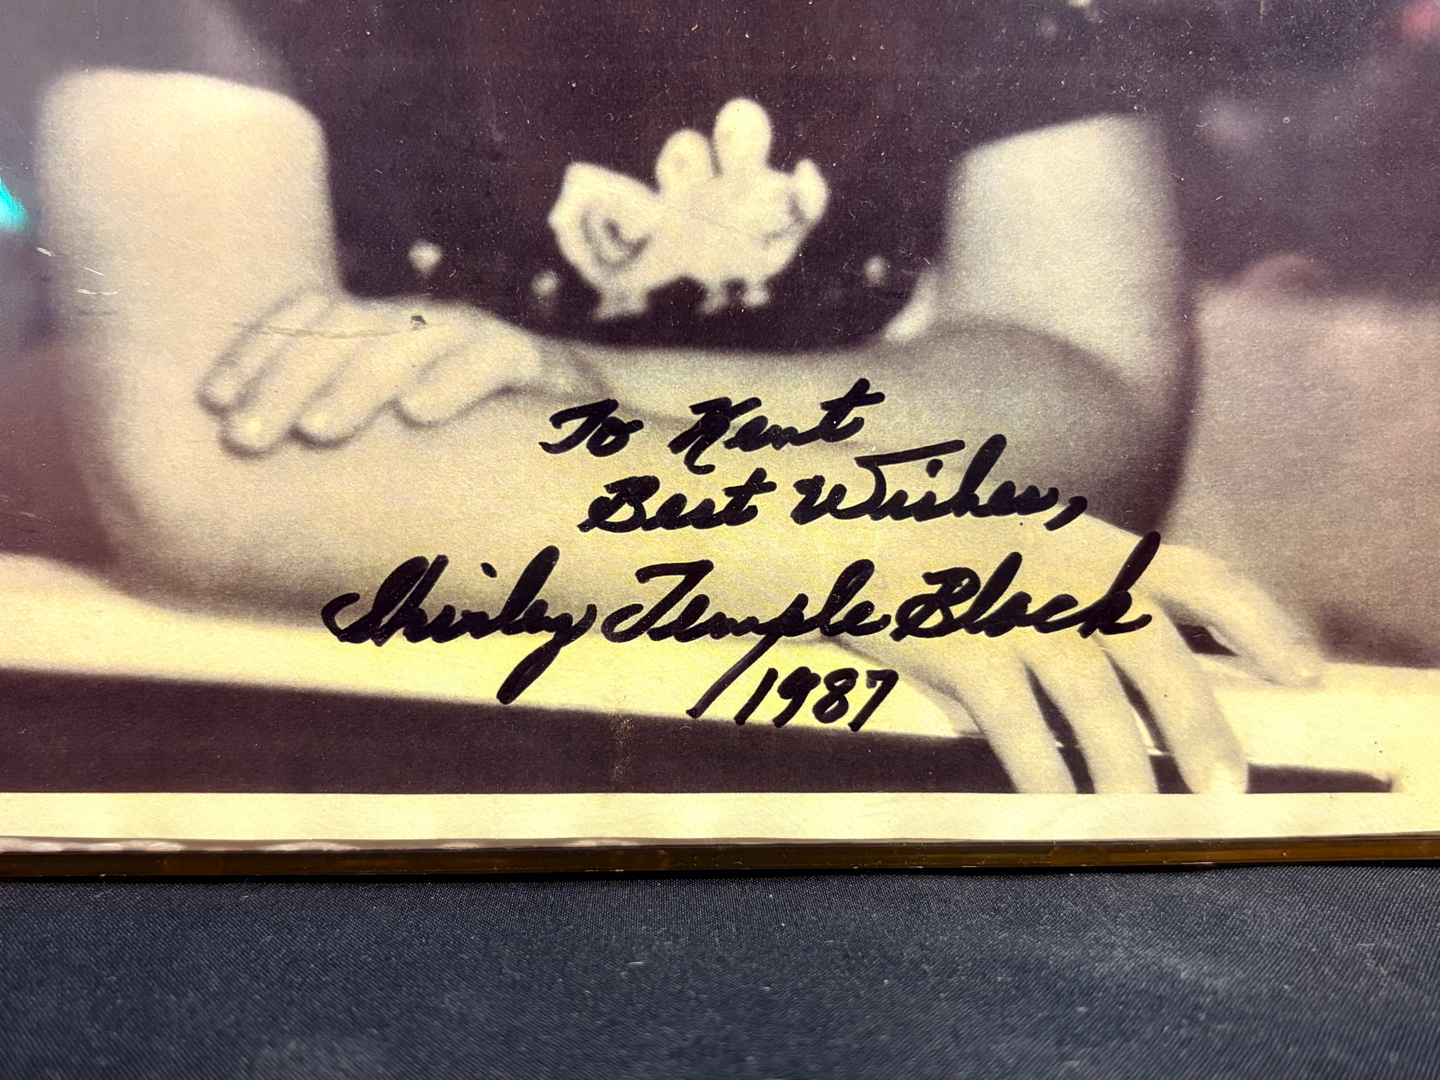 To Kent
Best Wishes,
Shirley Temple Black
1987